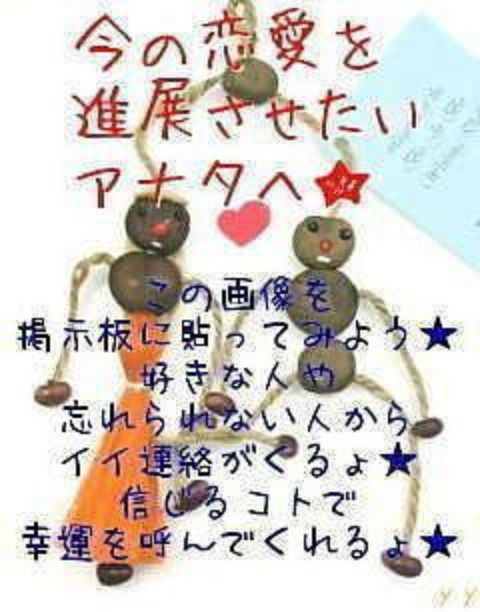 今の恋愛を
進展させたい
アナタへ★
この画像を
掲示板に貼ってみよう★
好きな人や
忘れられない人から
イイ連絡がくるょ★
信じるコトで
幸運を呼んでくれるょ★